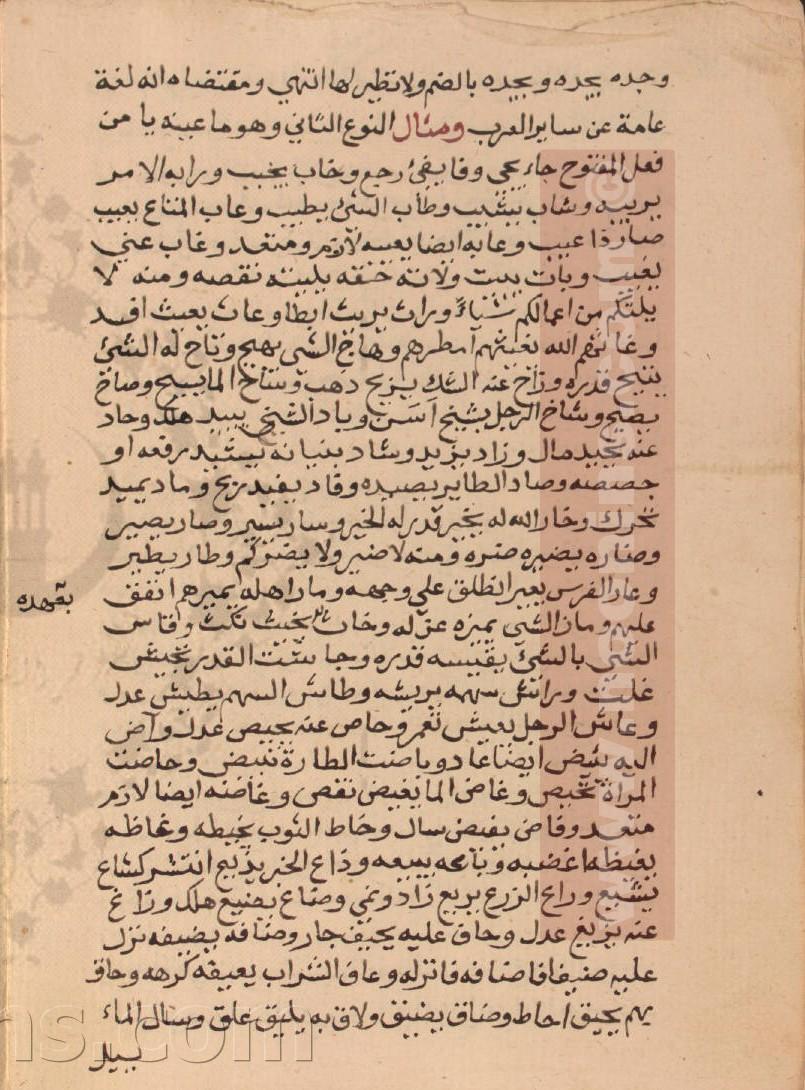 وجده يجده ويجده بالضم ولا نظير لها انتهي ومقتضاه انه لغة
عامة عن ساير العرب ومثال النوع الثاني وهو ما عينه يا من
فعل المفتوح جاء يجي وفا يفئ رجع وخاب يخيب ورابه الامر
يريبه وشاب يشيب وطاب الشئ يطيب وعاب المتاع يعيب
صار ذا عيب وعابه ايضا يعيبه لازم ومتعد وغاب عني
يغيب وبات يبيت ولاته حقه يليته نقصه ومنه لا
يلتكم من اعمالكم شيأ وراث يريث ابطا وعاث يعيث افسد
وغاثهم الله يغيثهم امطرهم وهاج الشي يهيج وتاح له الشئ
يتيح قدره وزاح عنه الشك يزيح ذهب وساح الما يسيح وصاح
يصيح وشاخ الرجل يشيخ اسن وباد الشئ يبيد هلك وحاد
عنه يحيد مال وزاد يزيد وشاد بنيانه يشيد رفعه او
جصصه وصاد الطاير يصيده وفاد يفيد ربح وماد يميد
تحرك وخار الله له يخير قدر له الخير وسار يسير وصار يصير
وضاره يضيره ضره ومنه لا ضير ولا يضركم وطار يطير
وعار الفرس يعير انطلق علي وجهه ومار اهله يميرهم انفق
عليهم وماز الشي يميزه عزله وخاس يخيس نكث وقاس
بعهده
الشي بالشئ يقيسه قدره وجاشت القدر تجيش
غلت وراش سهمه يريشه وطاش السهم يطيش عدل
وعاش الرجل يعيش نعم وحاص عنه يحيص عدل وآض
اليه يئيض ايضا عاد وباضت الطائرة تبيض وحاضت
المرأة تحيض وغاض الما يغيض نقص وغاضه ايضا لازم
متعد وفاض يفيض سال وخاط الثوب يخيطه وغاظه
يغيظه اغضبه وباعه يبيعه وذاع الخبر يذيع انتشر كشاع
يشيع وراع الزرع يريع زاد ونمي وضاع يضيع هلك وزاغ
عنه يزيغ عدل وحاف عليه يحيف جار وضافه يضيفه نزل
عليه ضيفا فاضافه فانزله وعاف الشراب يعيفه كرهه وحاق
بهم يحيق احاط وضاق يضيق ولاق به يليق علق وسال الماء
يسيل